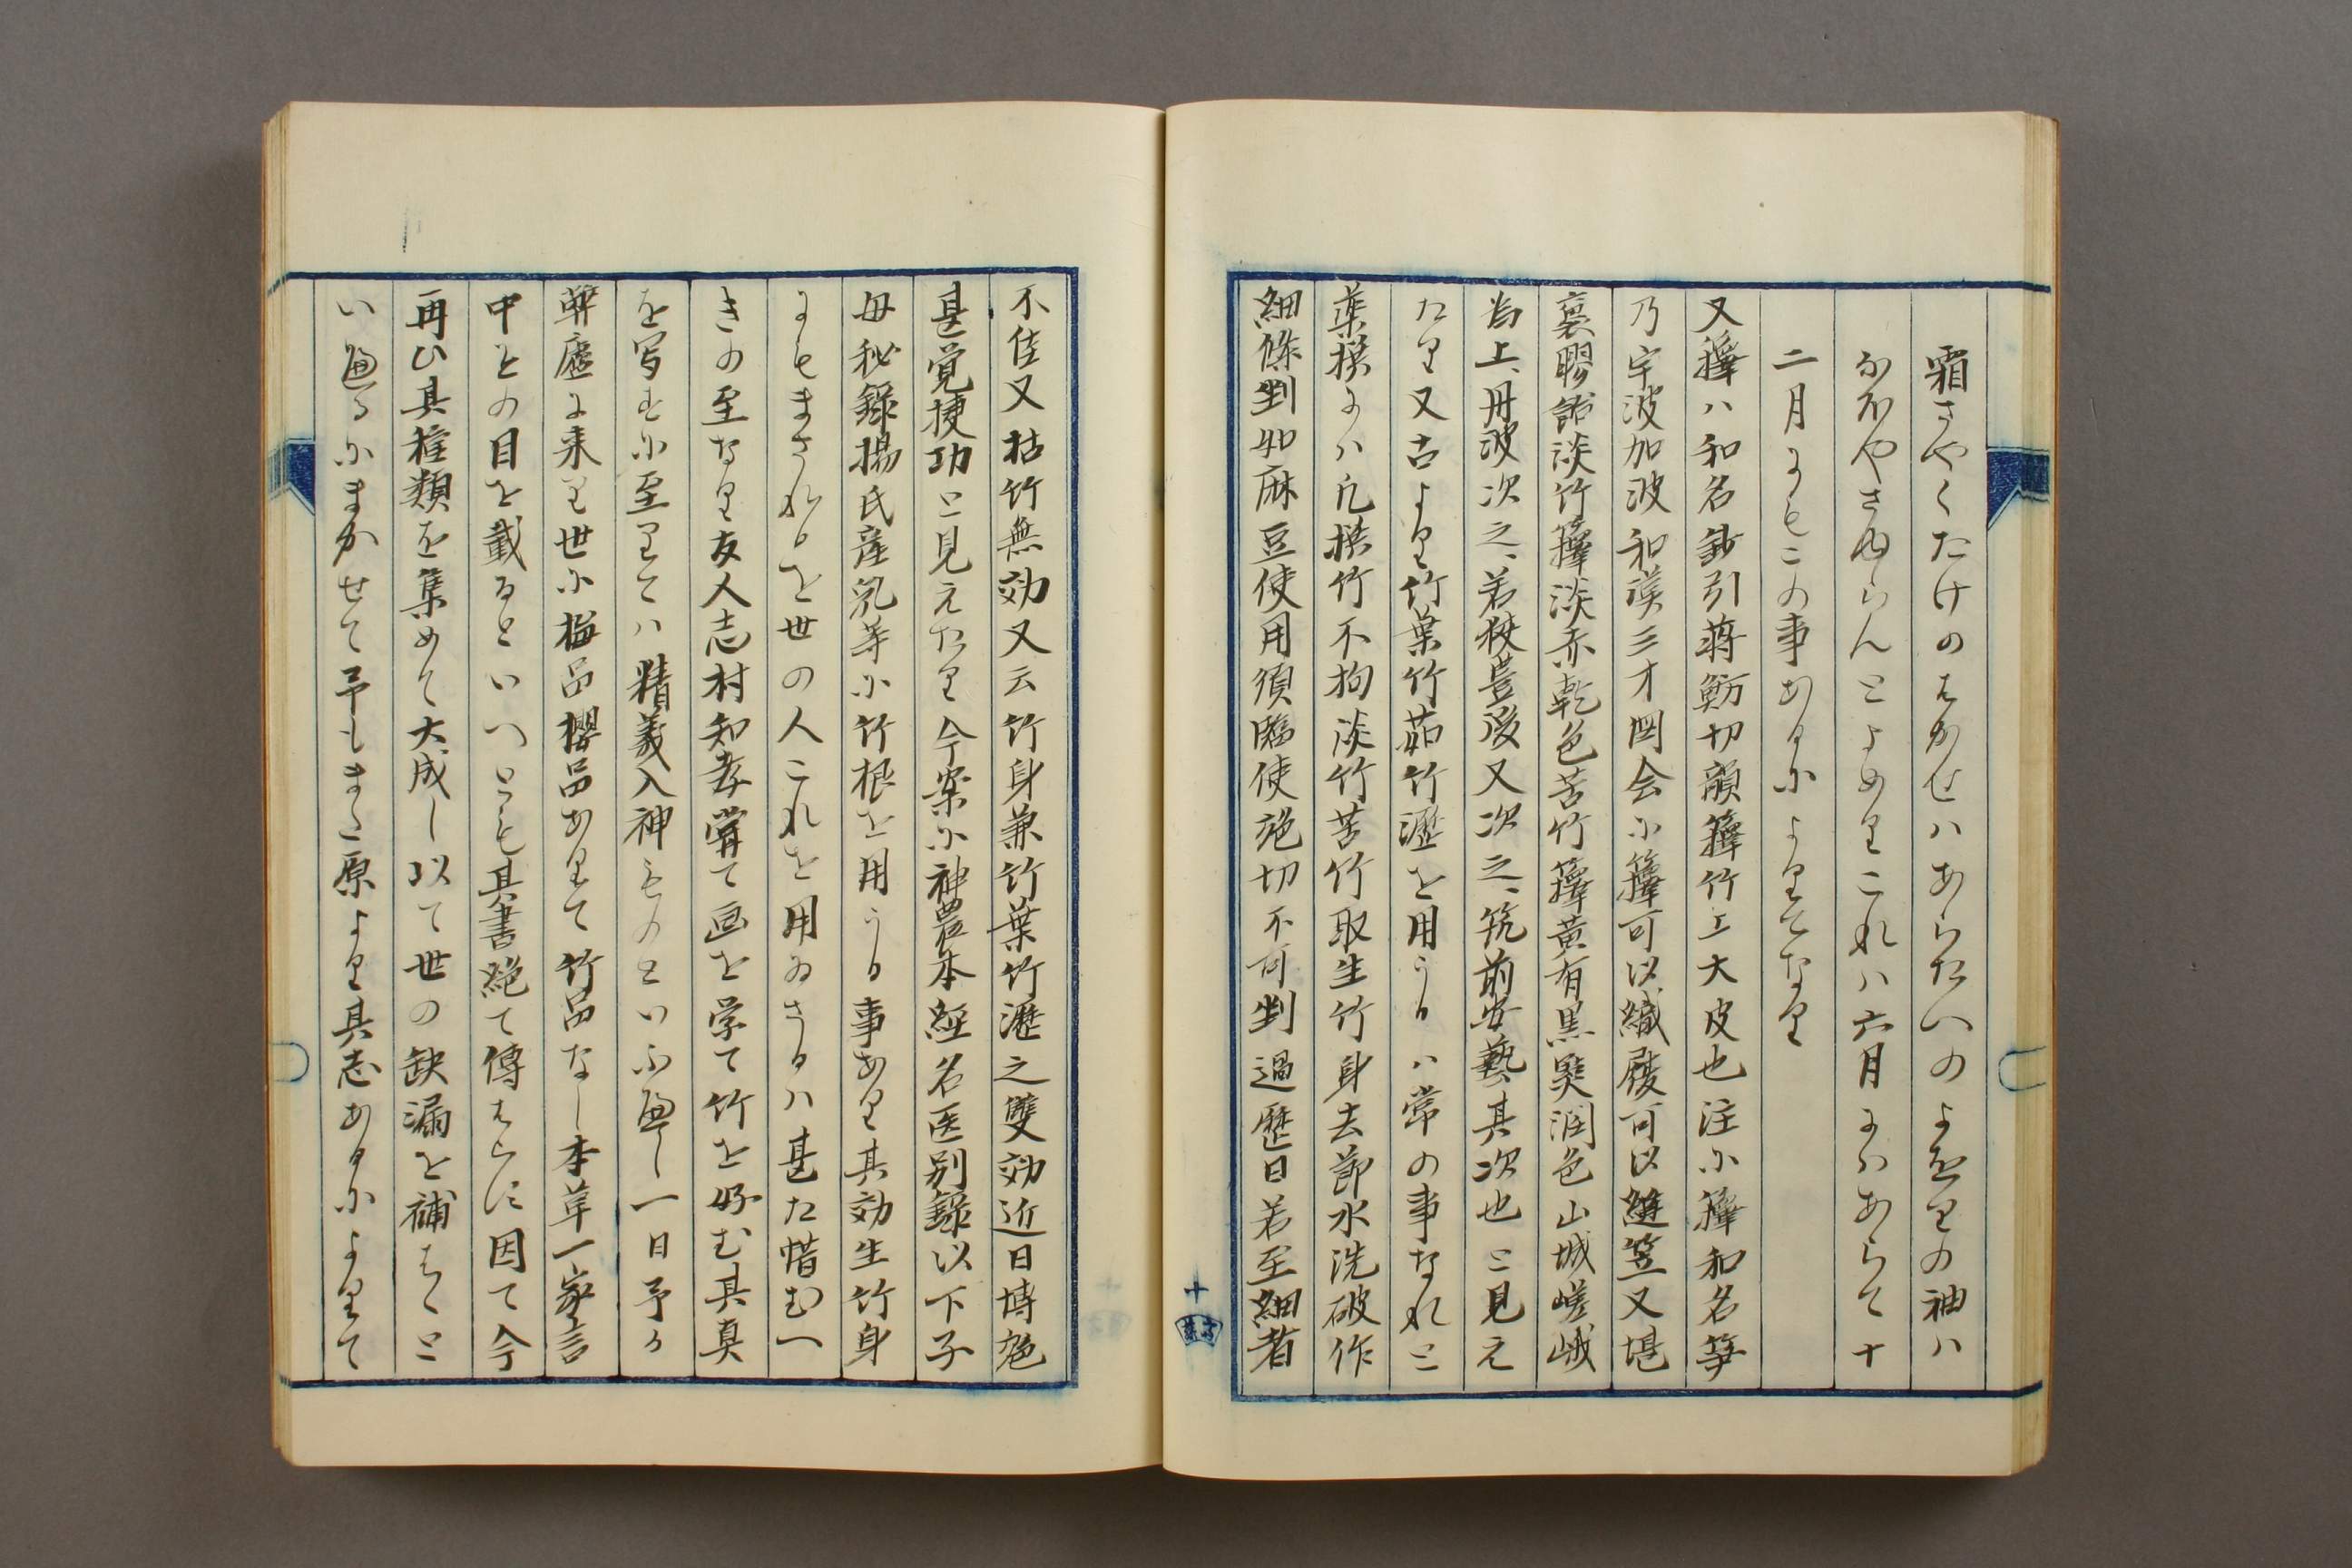 霜さやくたけのはかせはあらたへのよをりの袖ハ
なほやさゆらんとよめりこれハ六月にハあらて十
二月にもこの事あるによりてなり
又籜ハ和名鈔引蒋魴切韻籜竹上大皮也注に籜和名笋
乃宇波加波和漢三才図会に籜可以織履可以縫笠又堪
裹膠飴淡竹籜淡赤乾色苦竹籜黄有黒斑潤色山城嵯峨
為上、丹波次之、若狭豊後又次之、筑前安藝其次也と見え
たり又古より竹葉竹茹竹瀝を用うるハ常の事なれと
薬撰にハ凡撰竹不拘淡竹苦竹取生竹身去節水洗破作
細條剉如麻豆使用須臨使施切不可剉過歴日若至細者
十
不佳又枯竹無効又云竹身兼竹葉竹瀝之雙効近日博施
甚覚捷功と見えたり今案に神農本經名医別録以下子
母秘録楊氏産乳等に竹根を用うる事あり其効生竹身
にもまされるを世の人これを用ゐさるハ甚た惜むへ
きの至なり友人志村知孝甞て画を学て竹を好む其真
を写すに至りてハ精義入神ものといふ遍し一日予か
草廬に来り世に梅品櫻品ありて竹品なし本草一家言
中との目を載るといへとも其書絶て傳はらす因て今
再ひ其種類を集めて大成し以て世の缺漏を補はゝと
い遍るにまかせて予もまた原より其志あるによりて